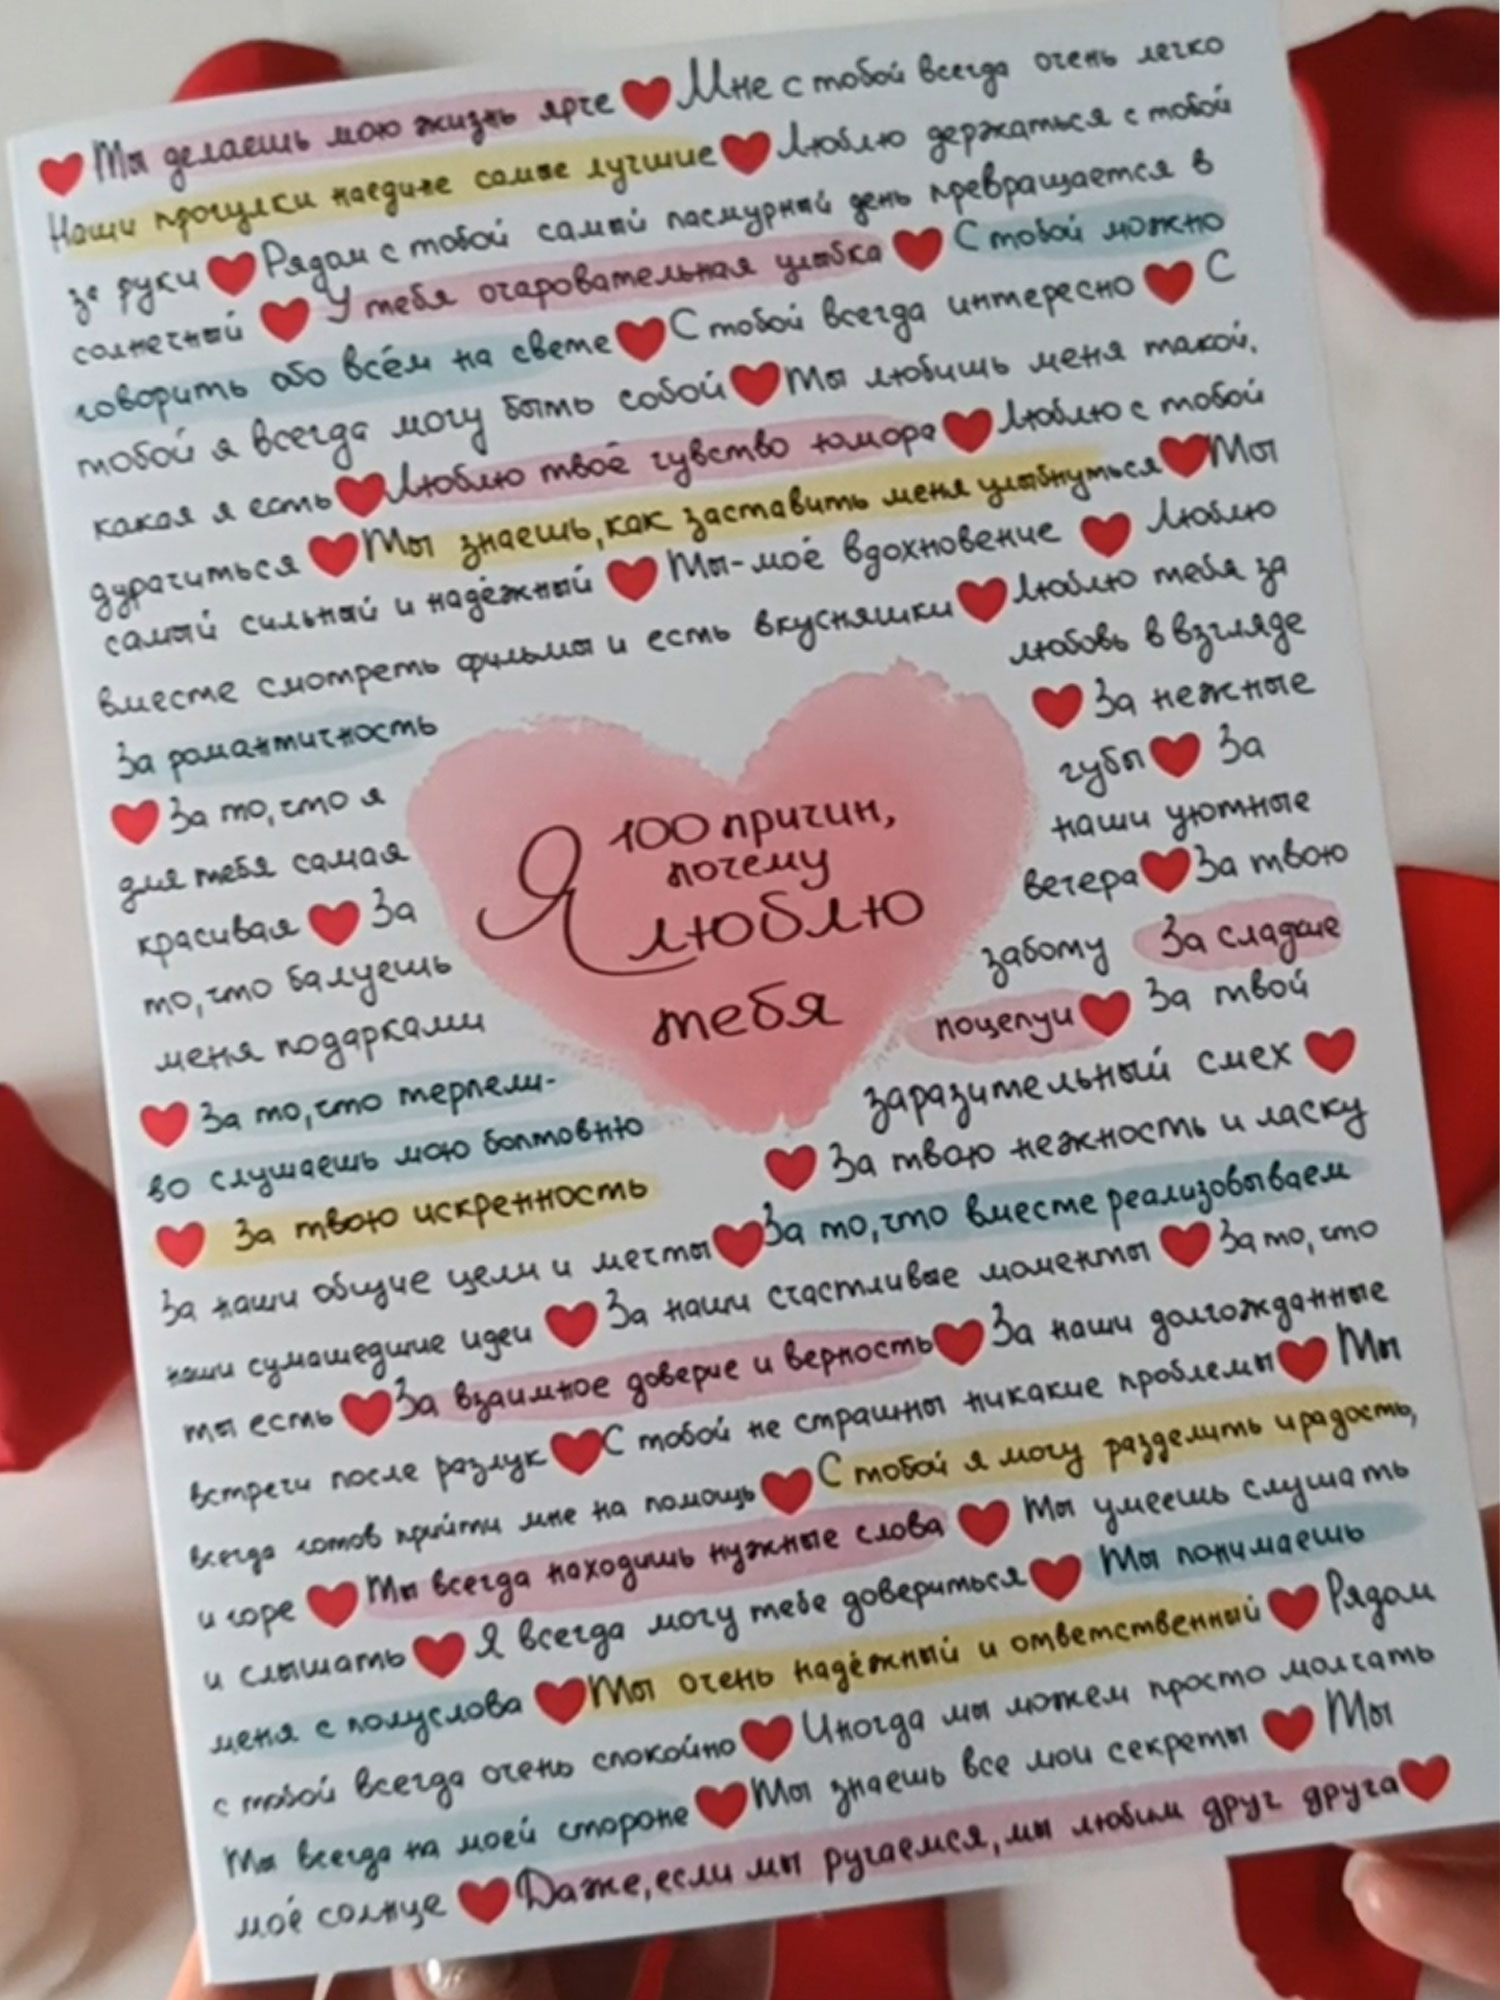 ❤ Ты делаешь мою жизнь ярче ❤ Мне с тобой всегда очень легко
Наши прогулки наедине самые лучшие ❤ Люблю держаться с тобой
за руки ❤ Рядом с тобой самый пасмурный день превращается в
солнечный ❤ У тебя очаровательная улыбка ❤ С тобой можно
говорить обо всём на свете ❤ С тобой всегда интересно ❤ С
тобой я всегда могу быть собой ❤ Ты любишь меня такой,
какая я есть ❤ Люблю твоё чувство юмора ❤ Люблю с тобой
дурачиться ❤ Ты знаешь, как заставить меня улыбнуться ❤ Ты
самый сильный и надёжный ❤ Ты - моё вдохновение ❤ Люблю
вместе смотреть фильмы и есть вкусняшки ❤ Люблю тебя за
За романтичность
❤ За то, что я
для тебя самая
красивая ❤ За
то, что балуешь
меня подарками
❤ За то, что терпели-
во слушаешь мою болтовню
❤ За твою искренность
100 причин,
почему
Я люблю
тебя
любовь в взгляде
❤ За нежные
губы ❤ За
наши уютные
вечера ❤ За твою
заботу За сладкие
поцелуи ❤ За твой
заразительный смех ❤
❤ За твою нежность и ласку
За наши общие цели и мечты ❤ За то, что вместе реализовываем
наши сумашедшие идеи ❤ За наши счастливые моменты ❤ За то, что
ты есть ❤ За взаимное доверие и верность ❤ За наши долгожданные
встречи после разлук ❤ С тобой не страшны никакие проблемы ❤ Ты
всегда готов прийти мне на помощь ❤ С тобой я могу разделить и радость,
и горе ❤ Ты всегда находишь нужные слова ❤ Ты умеешь слушать
и слышать ❤ Я всегда могу тебе довериться ❤ Ты понимаешь
меня с полуслова ❤ Ты очень надёжный и ответственный ❤ Рядом
с тобой всегда очень спокойно ❤ Иногда мы можем просто молчать
Ты всегда на моей стороне ❤ Ты знаешь все мои секреты ❤ Ты
моё солнце ❤ Даже, если мы ругаемся, мы любим друг друга ❤